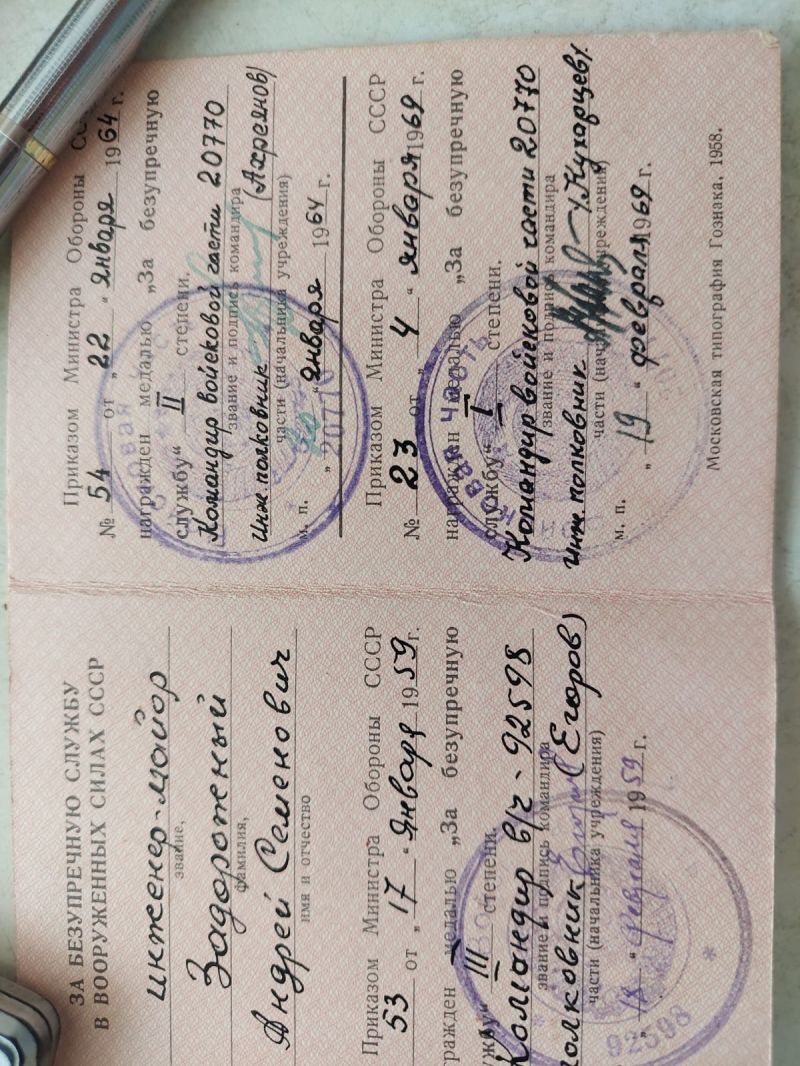 ЗА БЕЗУПРЕЧНУЮ СЛУЖБУ
В ВООРУЖЕННЫХ СИЛАХ СССР
инженер-майор
звание,
Задорожный
фамилия,
Андрей Семенович
имя и отчество
Приказом Министра Обороны СССР
53 от „17“ Января 1959г.
гражден медалью „За безупречную
ужбу“ III степени.
Командир в/ч-92598
звание и подпись командира
олковник (Егоров)
части (начальника учреждения)
„18“ февраля 1959 г.
92598
Приказом Министра Обороны СС
№ 54 от „22“ января 1964 г.
награжден медалью „За безупречную
службу“ II степени.
Командир войсковой части 20770
звание и подпись командира
Инж. полковник (Ахреянов)
части (начальника учреждения)
м. п. „30“ января 1964 г.
20770
Приказом Министра Обороны СССР
№ 23 от „4“ января 1969 г.
награжден медалью „За безупречную
службу“ I степени.
Командир войсковой части 20770
звание и подпись командира
Инж. полковник (Кухарцев)
части (начальника учреждения)
м. п. „19“ февраля 1969 г.
Московская типография Гознака, 1958.